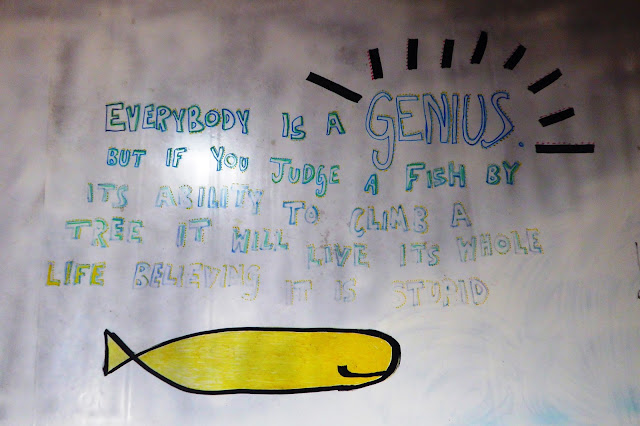 EVERYBODY IS A GENIUS.
BUT IF YOU JUDGE A FISH BY
ITS ABILITY TO CLIMB A
TREE IT WILL LIVE ITS WHOLE
LIFE BELIEVING IT IS STUPID